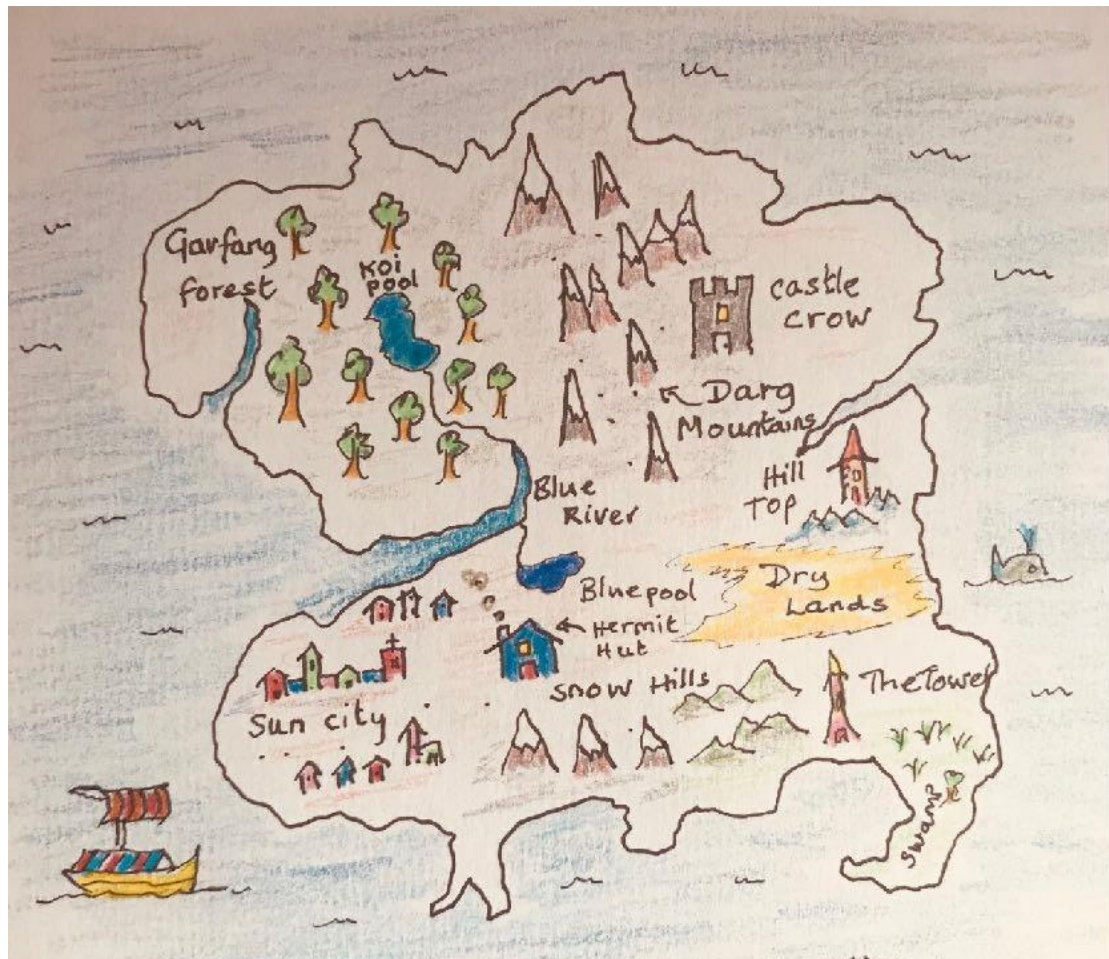 Garfang
forest
Koi
pool
castle
crow
Darg
Mountains
Hill
Top
Blue
River
Dry
Lands
Bluepool
Hermit
Hut
Snow Hills
The Tower
Sun city
Swamp